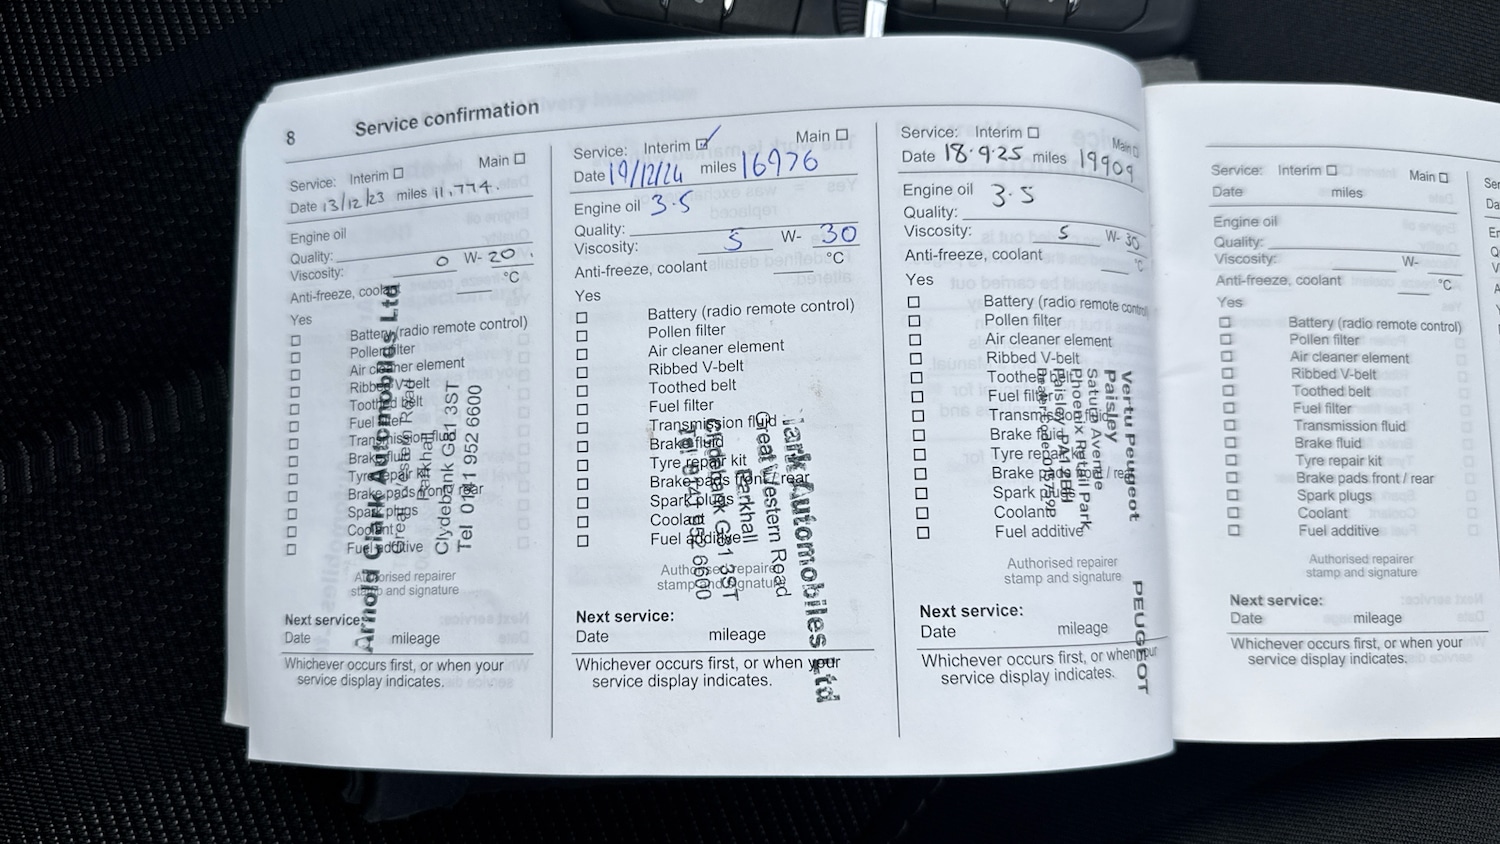 8
Service confirmation
Service: Interim ☐ Main ☐
Date 13/12/23 miles 11,774.
Engine oil
Quality:
Viscosity: 0 W- 20.
Anti-freeze, coolant °C
Yes
☐ Battery (radio remote control)
☐ Pollen filter
☐ Air cleaner element
☐ Ribbed V-belt
☐ Toothed belt
☐ Fuel filter
☐ Transmission fluid
☐ Brake fluid
☐ Tyre repair kit
☐ Brake pads front / rear
☐ Spark plugs
☐ Coolant
☐ Fuel additive
Arnold Clark Automobiles Ltd
Great Western Road
Parkhall
Clydebank G81 3ST
Tel 0141 952 6600
Authorised repairer
stamp and signature
Next service:
Date mileage
Whichever occurs first, or when your
service display indicates.
Service: Interim ☑ Main ☐
Date 19/12/24 miles 16976
Engine oil 3.5
Quality:
Viscosity: 5 W- 30
Anti-freeze, coolant °C
Yes
☐ Battery (radio remote control)
☐ Pollen filter
☐ Air cleaner element
☐ Ribbed V-belt
☐ Toothed belt
☐ Fuel filter
☐ Transmission fluid
☐ Brake fluid
☐ Tyre repair kit
☐ Brake pads front / rear
☐ Spark plugs
☐ Coolant
☐ Fuel additive
Clark Automobiles Ltd
Great Western Road
Parkhall
Clydebank G81 3ST
Tel 0141 952 6600
Authorised repairer
stamp and signature
Next service:
Date mileage
Whichever occurs first, or when your
service display indicates.
Service: Interim ☐ Main ☐
Date 18.9.25 miles 19909
Engine oil 3.5
Quality:
Viscosity: 5 W- 30
Anti-freeze, coolant °C
Yes
☐ Battery (radio remote control)
☐ Pollen filter
☐ Air cleaner element
☐ Ribbed V-belt
☐ Toothed belt
☐ Fuel filter
☐ Transmission fluid
☐ Brake fluid
☐ Tyre repair kit
☐ Brake pads front / rear
☐ Spark plugs
☐ Coolant
☐ Fuel additive
Vertu Peugeot
Paisley
Saturn Avenue
Phoenix Retail Park
Paisley PA1 2BH
PEUGEOT
Authorised repairer
stamp and signature
Next service:
Date mileage
Whichever occurs first, or when your
service display indicates.
Service: Interim ☐ Main ☐
Date miles
Engine oil
Quality:
Viscosity: W-
Anti-freeze, coolant °C
Yes
☐ Battery (radio remote control)
☐ Pollen filter
☐ Air cleaner element
☐ Ribbed V-belt
☐ Toothed belt
☐ Fuel filter
☐ Transmission fluid
☐ Brake fluid
☐ Tyre repair kit
☐ Brake pads front / rear
☐ Spark plugs
☐ Coolant
☐ Fuel additive
Authorised repairer
stamp and signature
Next service:
Date mileage
Whichever occurs first, or when your
service display indicates.